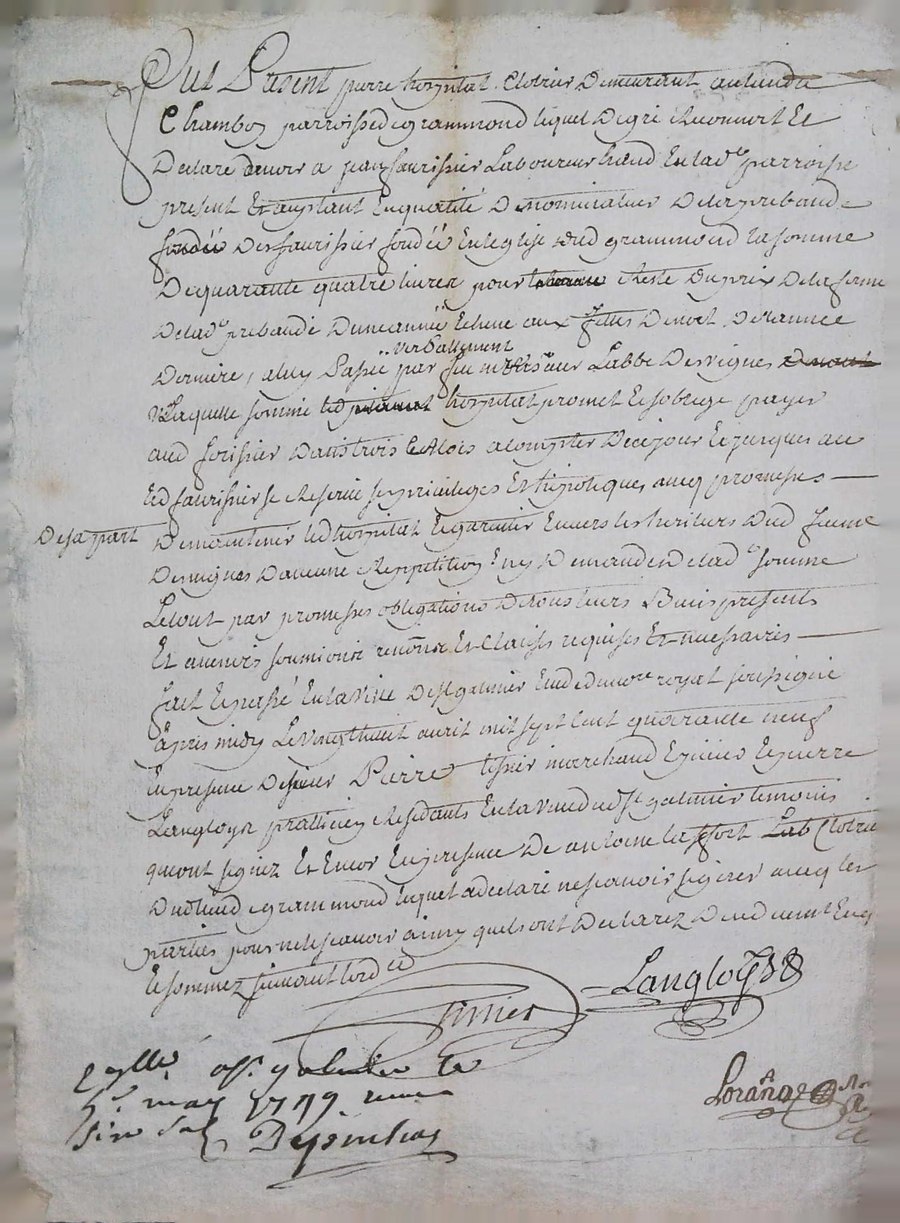 Fut Présent pierre hospital Clotrier Demeurant au lieu du
Chamboy parroisse de grammond lequel De gré Reconnoit Et
Declaré devoir a jean faurissier Laboureur habd En lad.e parroisse
present Et aceptant En qualité De nominateur De la prebande
fondée Des faurissier fondée En leglise dud grammond la somme
De quarante quatre livres pour Reste Du prix De la ferme
De lad.e prebande Dune année Echeue aux fettes De noel De lannée
verballement
Derniere, a luy Passée par feu messire Labbé Desvignes
Laquelle somme led hospital promet Et soblige payer
aud forissier Dans trois Mois a compter De ce jour Et jusques au
led faurissier se Reserve ses privileges Et hipoteques avecq promesses
De sa part
De maintenir led hospital Et garantir Envers les heritiers Dud feu me
Desvignes Daucune Reppetition ny Demandes De lad.e somme
Le tout par promesses obligations De tous leurs Biens presents
Et avenirs soumions renons Et Clauses requises Et necessaires
fait Et passé En la ville De st galmier Etude du no.re royal soussigné
apres midy Le vingt huit avril mil sept cent quarante neuf
En presence De sieur Pierre tissier marchand Epicier Et pierre
Langloys pratticien Residants En la ville de st galmier temoins
qui ont signez Et Encor En presence De antoine
Dud lieud grammond lequel a declaré ne scavoir signer avecq les
parties pour ne le scavoir ainsy quels ont Declarez De ce Enquis
Et sommez suivant lord.ce
Tissier
Langloys
Coll.é a st galmier le
5.e may 1749
Desjonchas
Lorange